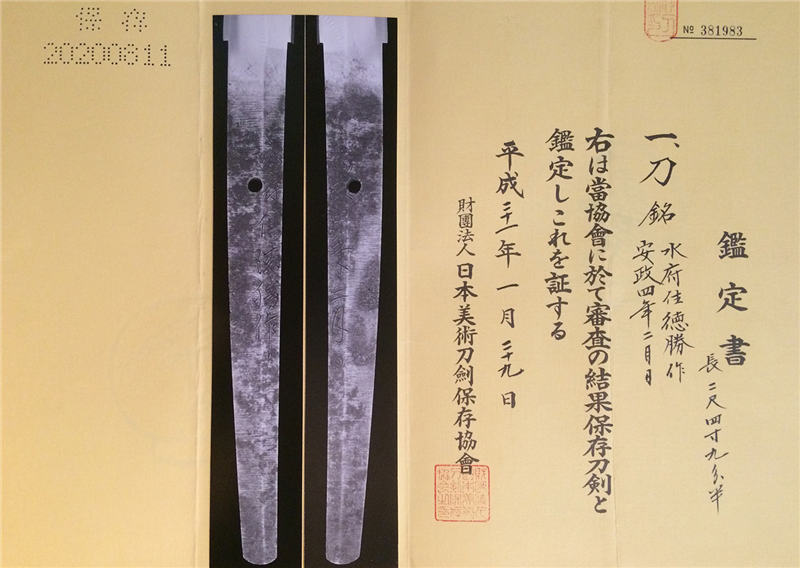 保存
№ 381983
鑑定書
長二尺四寸九分半
一、刀 銘 水府住徳勝作
安政四年二月日
右は當協會に於て審査の結果保存刀剣と
鑑定しこれを証する
平成二十一年一月二十九日
財團法人日本美術刀劍保存協會